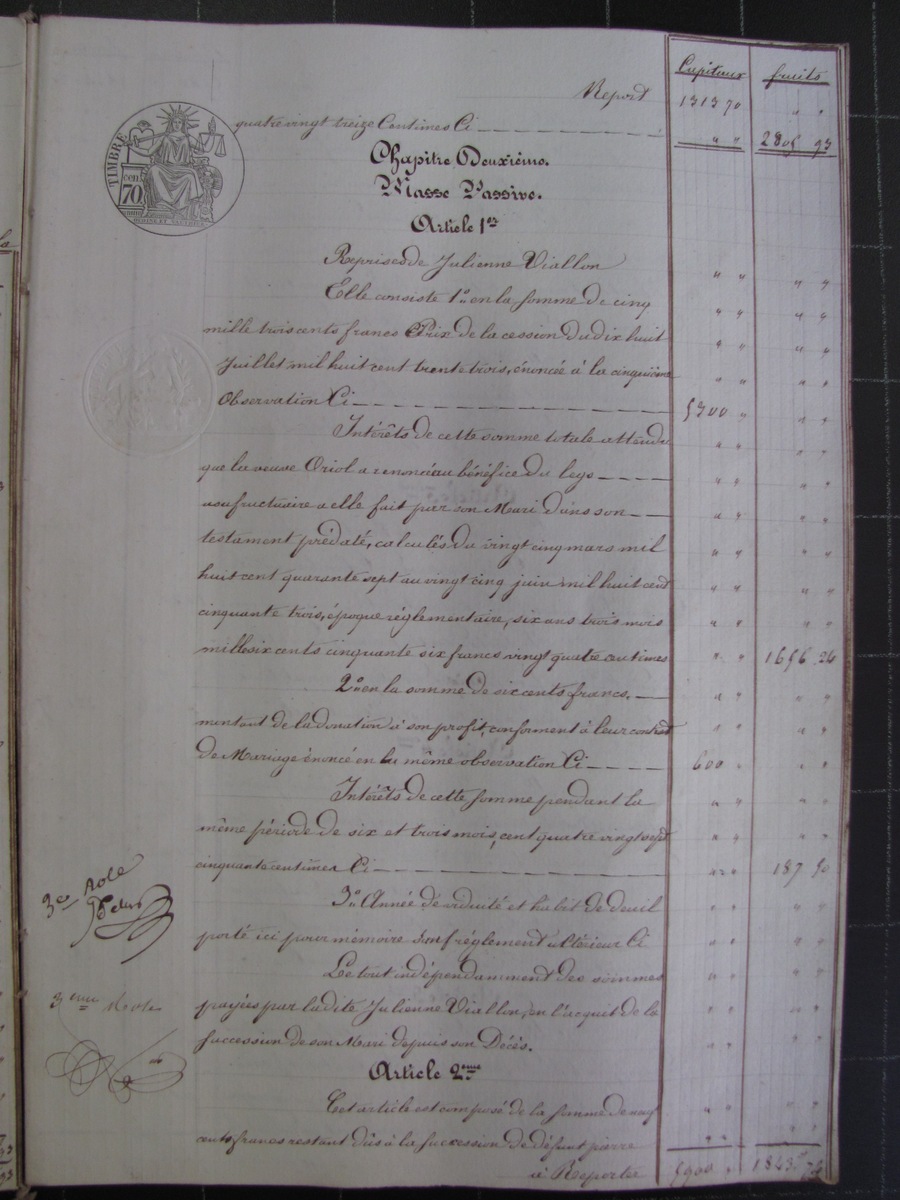 Capitaux fruits
Report 1313 70 " "
quatre vingt treize Centimes Ci " " 2805 93
TIMBRE
70 cen
Chapitre Deuxième.
Masse Passive.
Article 1er
Reprises de Julienne Viallon " " " "
Elle consiste 1o en la somme de cinq " " " "
mille trois cents francs Prix de la cession du dix huit " " " "
Juillet mil huit cent trente trois, énoncée à la cinquième " " " "
Observation Ci 5300 " " "
Intérêts de cette somme totale attendu " " " "
que la veuve Oriol a renoncé au bénéfice du legs " " " "
usufructuaire a elle fait par son Mari dans son " " " "
testament prédaté, calculés du vingt cinq mars mil " " " "
huit cent quarante sept au vingt cinq juin mil huit cent " " " "
cinquante trois, époque réglementaire, six ans trois mois " " " "
mille six cents cinquante six francs vingt quatre centimes " " 1656 24
2o en la somme de six cents francs. " " " "
montant de la donation à son profit, conforment à leur contrat " " " "
de Mariage énoncé en la même observation Ci 600 " " "
Intérêts de cette somme pendant la " " " "
même période de six et trois mois, cent quatre vingt sept " " " "
cinquante centimes Ci " " 187 50
3o Année de viduité et habit de deuil " " " "
porté ici pour mémoire sauf réglement ultérieur Ci " " " "
Le tout indépendamment des sommes " " " "
payées par ladite Julienne Viallon, en l'acquit de la " " " "
succession de son Mari depuis son Décès. " "
Article 2eme
Cet article est composé de la somme de neuf " " " "
cents francs restant dûs à la succession de défunt pierre " " " "
à Reporter 5900 " 1843 74
3e Role
3eme Role